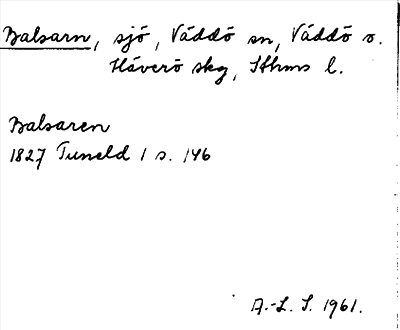 Balsarn, sjö, Väddö sn, Väddö o.
Häverö skg, Sthms l.
Balsaren
1827 Tuneld 1 s. 146
A.-L. S. 1961.